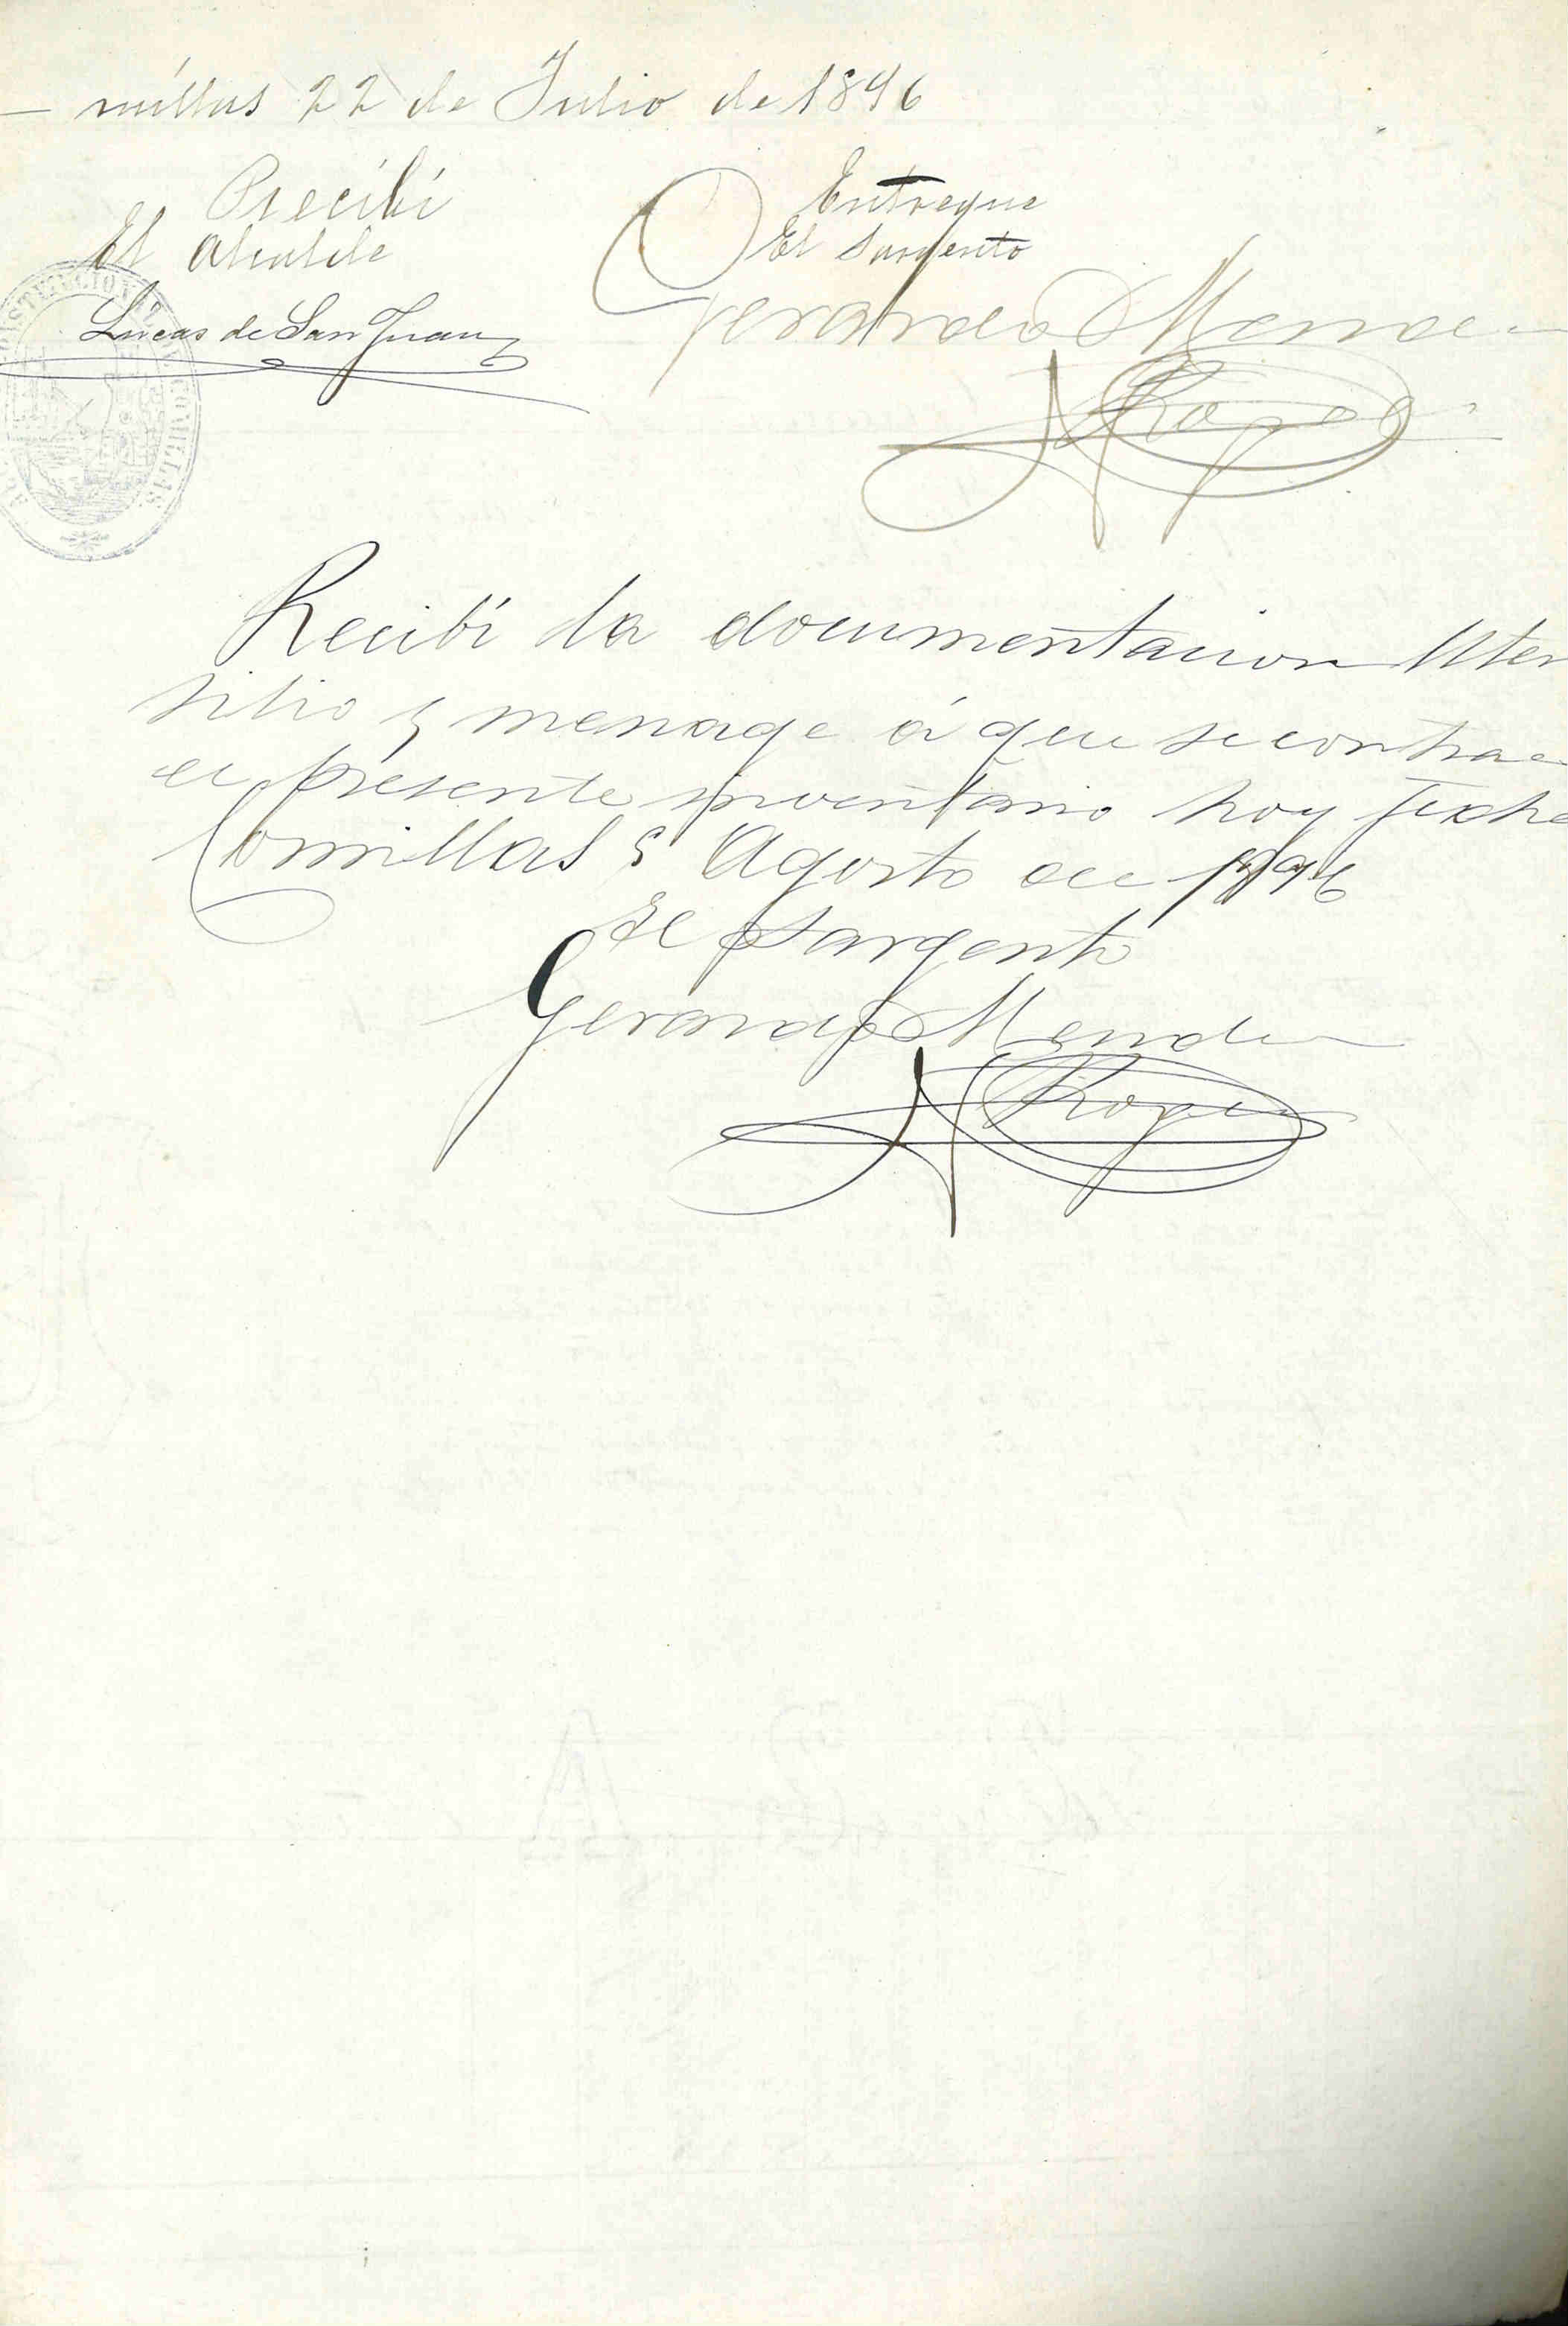 — millas 22 de Julio de 1896
Recibí
El Alcalde
Lucas de San Juan
Entregue
El Sargento
Gerardo Mendez
Rogoz
Recibí la documentacion Uten
silio y menage á que se contrae
el presente inventario hoy fecha
Comillas 5 Agosto de 1896
El Sargento
Gerardo Mendez
CONSTITUCIONAL DE COMILLAS